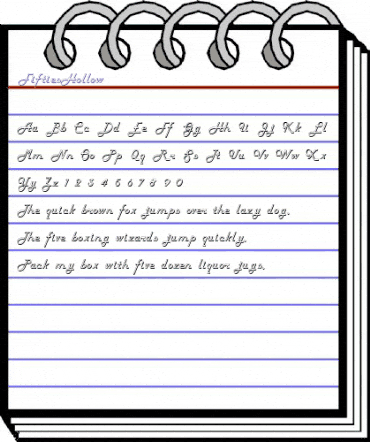 FiftiesHollow
Aa Bb Cc Dd Ee Ff Gg Hh Ii Jj Kk Ll
Mm Nn Oo Pp Qq Rr Ss Tt Uu Vv Ww Xx
Yy Zz 1 2 3 4 5 6 7 8 9 0
The quick brown fox jumps over the lazy dog.
The five boxing wizards jump quickly.
Pack my box with five dozen liquor jugs.